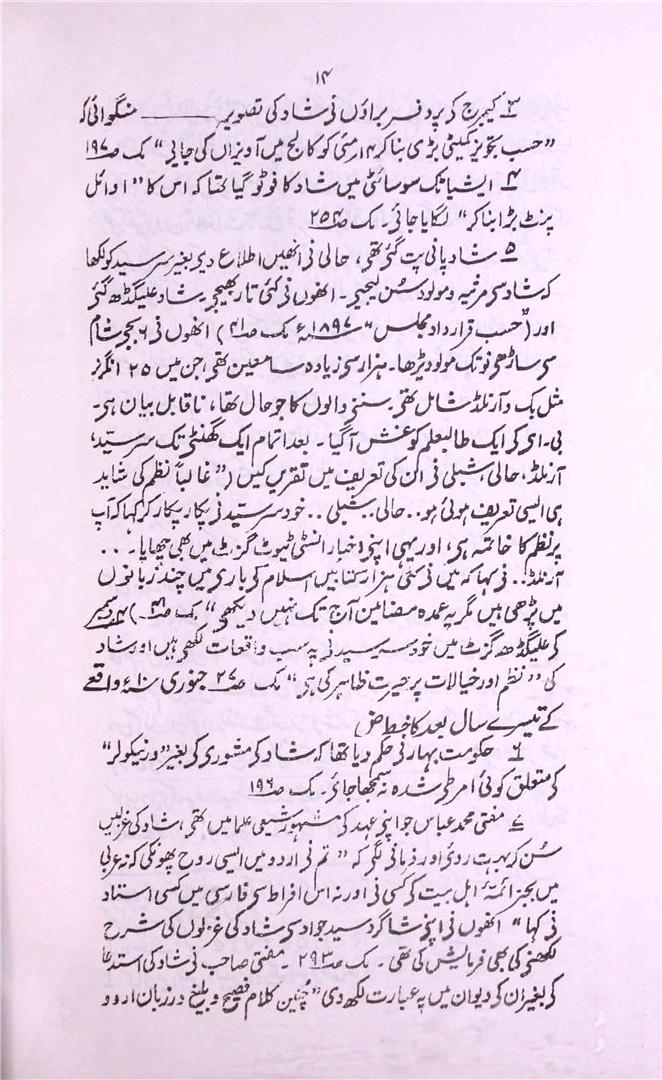 ۱۴
۳ کیمبرج کی پروفسر براؤن نی شاد کی تصویر ــــــ منگوائی کہ
"حسب تجویز کمیٹی بڑی بنا کر ۱۴ مئی کو کالج میں آویزاں کی جایی" مک صـ ۱۹۷
۴ ایشیاٹک سوسائٹی میں شاد کا فوٹو گیا تھا کہ اس کا "اوائل
پرنٹ بڑا بنا کر" لگایا جائی۔ مک صـ ۲۵۴
۵ شاد پانی پت گئی تھی، حالی نی انھیں اطلاع دیی بغیر سرسید کو لکھا
کہ شاد سی مرثیہ و مولود سن لیجیی۔ انھوں نی کئی تار بھیجی۔ شاد علیگڈھ گئی
اور ("حسب قرارداد مجلس" ۱۸۹۷ء مک صـ ۴۱) انھوں نی ۶ بجی شام
سی ساڑھی نو تک مولود پڑھا۔ ہزار سی زیادہ سامعین تھی، جن میں ۲۵ انگریز
مثل بک و آرنلڈ شامل تھی۔ سننی والوں کا جو حال تھا، ناقابل بیان ہی۔
بی۔ ای کی ایک طالبعلم کو غش آگیا۔ بعد اتمام ایک گھنٹی تک سرسید،
آرنلڈ، حالی، شبلی نی ان کی تعریف میں تقریریں کیں ("غالباً نظم کی شاید
ہی ایسی تعریف ہوئی ہو.. حالی.. شبلی.. خود سرسید نی پکار پکار کر کہا کہ آپ
پر نظم کا خاتمہ ہی، اور یہی اپنی اخبار انسٹی ٹیوٹ گزٹ میں بھی چھاپا...
آرنلڈ.. نی کہا کہ میں نی کئی ہزار کتابیں اسلام کی باری میں چند زبانوں
میں پڑھی ہیں مگر یہ عمدہ مضامین آج تک نہیں دیکھی" مک صـ ۴۱) دسمبر
کی علیگڈھ گزٹ میں خود سرسید نی یہ سب واقعات لکھی ہیں اور شاد
کی "نظم اور خیالات پر حیرت ظاہر کی ہی" مک صـ ۲۷ جنوری ۱۰ء واقعے
کے تیسرے سال بعد کا خط ض
۶ حکومت بہار نی حکم دیا تھا کہ شاد کی مشوری کی بغیر "ورنیکولر"
کی متعلق کوئی امر طی شدہ نہ سمجھا جائی۔ مک صـ ۱۹۶
۷ مفتی محمد عباس جو اپنی عہد کی مشہور شیعی علما میں تھی، شاد کی غزلیں
سن کر بہت روئی اور فرمانی لگی کہ "تم نی اردو میں ایسی روح پھونکی کہ نہ عربی
میں بجز ائمۂ اہل بیت کی کسی نی اور نہ اس افراط سی فارسی میں کسی استاد
نی کہا" انھوں نی اپنی شاگرد سید جواد سی شاد کی غزلوں کی شرح
لکھنی کی بھی فرمایش کی تھی۔ مک صـ ۲۹۳۔ مفتی صاحب نی شاد کی استدعا
کی بغیر ان کی دیوان میں یہ عبارت لکھ دی "چنین کلام فصیح و بلیغ در زبان اردو